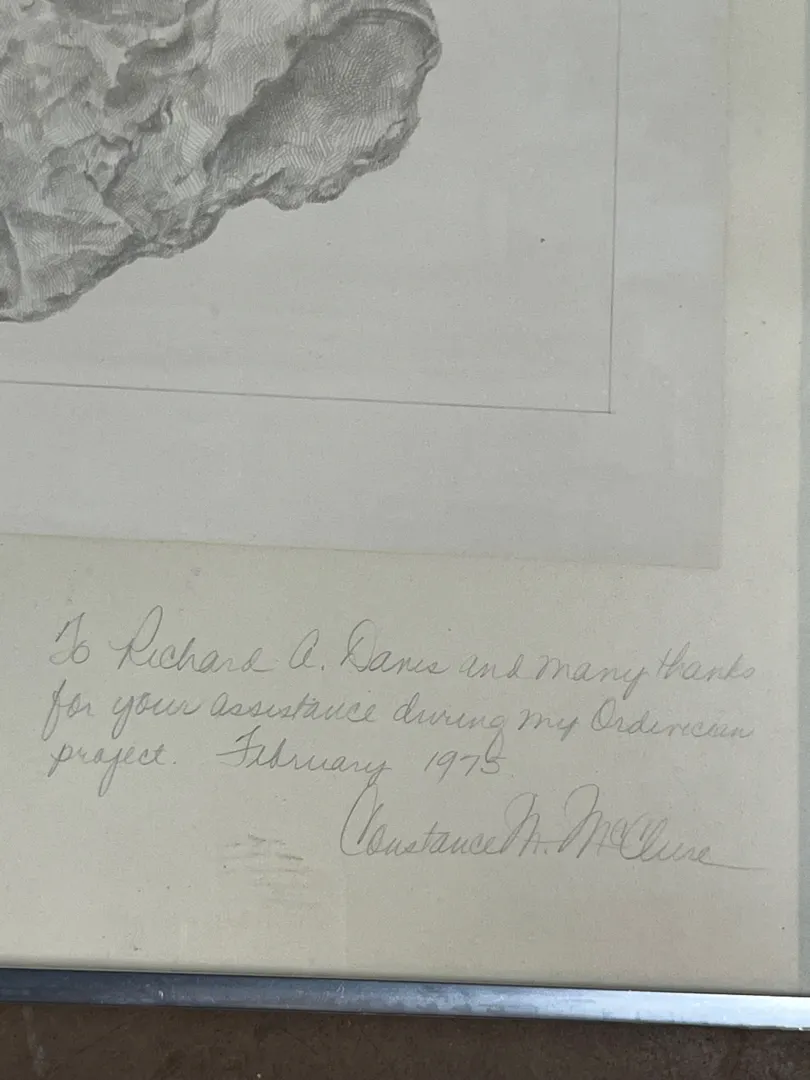 To Richard A. Davis and many thanks
for your assistance during my Ordivician
project. February 1975
Constance M. McClure